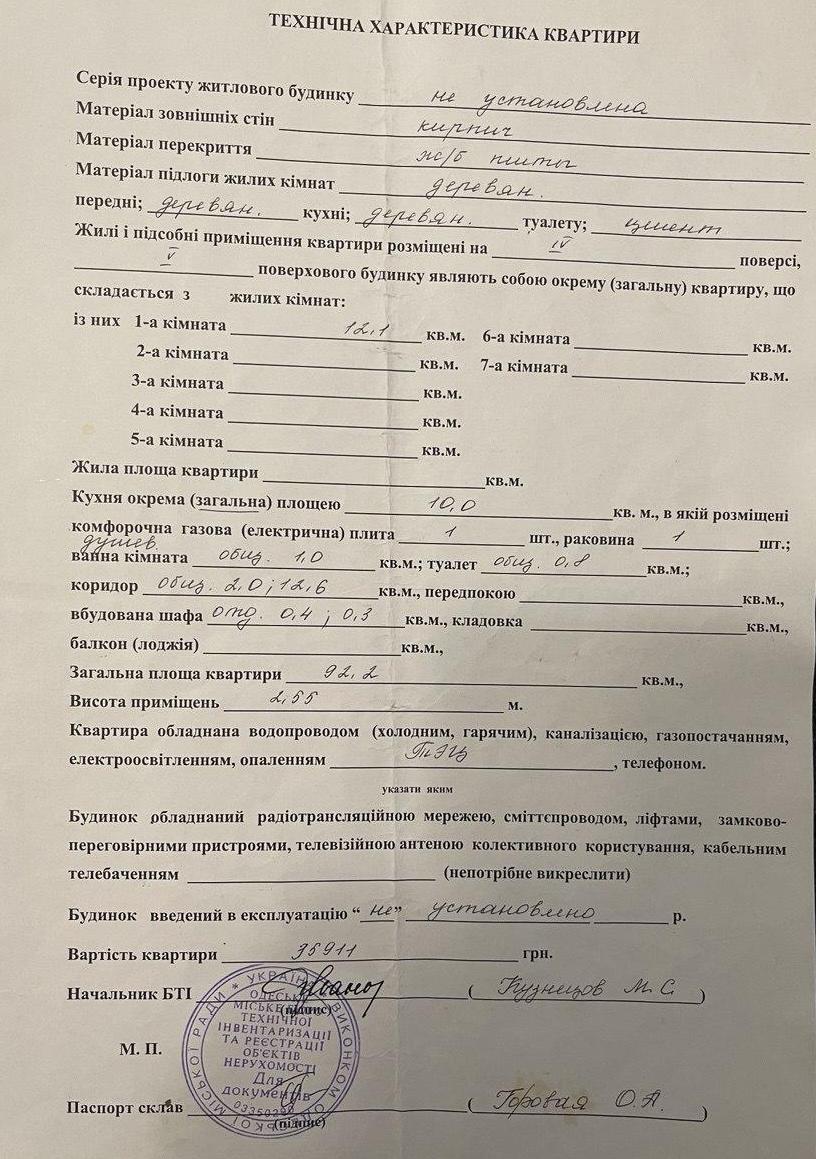 ТЕХНІЧНА ХАРАКТЕРИСТИКА КВАРТИРИ
Серія проекту житлового будинку не установлена
Матеріал зовнішніх стін кирпич
Матеріал перекриття ж/б плиты
Матеріал підлоги жилих кімнат деревян.
передні; деревян. кухні; деревян. туалету; цемент
Жилі і підсобні приміщення квартири розміщені на IV поверсі,
V поверхового будинку являють собою окрему (загальну) квартиру, що
складається з жилих кімнат:
із них 1-а кімната 12,1 кв.м. 6-а кімната кв.м.
2-а кімната кв.м. 7-а кімната кв.м.
3-а кімната кв.м.
4-а кімната кв.м.
5-а кімната кв.м.
Жила площа квартири кв.м.
Кухня окрема (загальна) площею 10,0 кв. м., в якій розміщені
комфорочна газова (електрична) плита 1 шт., раковина 1 шт.;
душев.
ванна кімната общ. 1,0 кв.м.; туалет общ. 0,8 кв.м.;
коридор общ. 2,0; 12,6 кв.м., передпокою кв.м.,
вбудована шафа отд. 0,4; 0,3 кв.м., кладовка кв.м.,
балкон (лоджія) кв.м.,
Загальна площа квартири 92,2 кв.м.,
Висота приміщень 2,55 м.
Квартира обладнана водопроводом (холодним, гарячим), каналізацією, газопостачанням,
електроосвітленням, опаленням ТЭЦ, телефоном.
указати яким
Будинок обладнаний радіотрансляційною мережею, сміттєпроводом, ліфтами, замково-
переговірними пристроями, телевізійною антеною колективного користування, кабельним
телебаченням (непотрібне викреслити)
Будинок введений в експлуатацію “не” установлено р.
Вартість квартири 35911 грн.
Начальник БТІ (Кузнецов М.С.)
(підпис)
М. П.
УКРАЇНА * ВИКОНКОМ ОДЕСЬКОЇ МІСЬКОЇ РАДИ *
ОДЕСЬКЕ
МІСЬКЕ БЮРО
ТЕХНІЧНОЇ
ІНВЕНТАРИЗАЦІЇ
ТА РЕЄСТРАЦІЇ
ОБ'ЄКТІВ
НЕРУХОМОСТІ
Для
документів
Паспорт склав (Горовая О.А.)
(підпис)